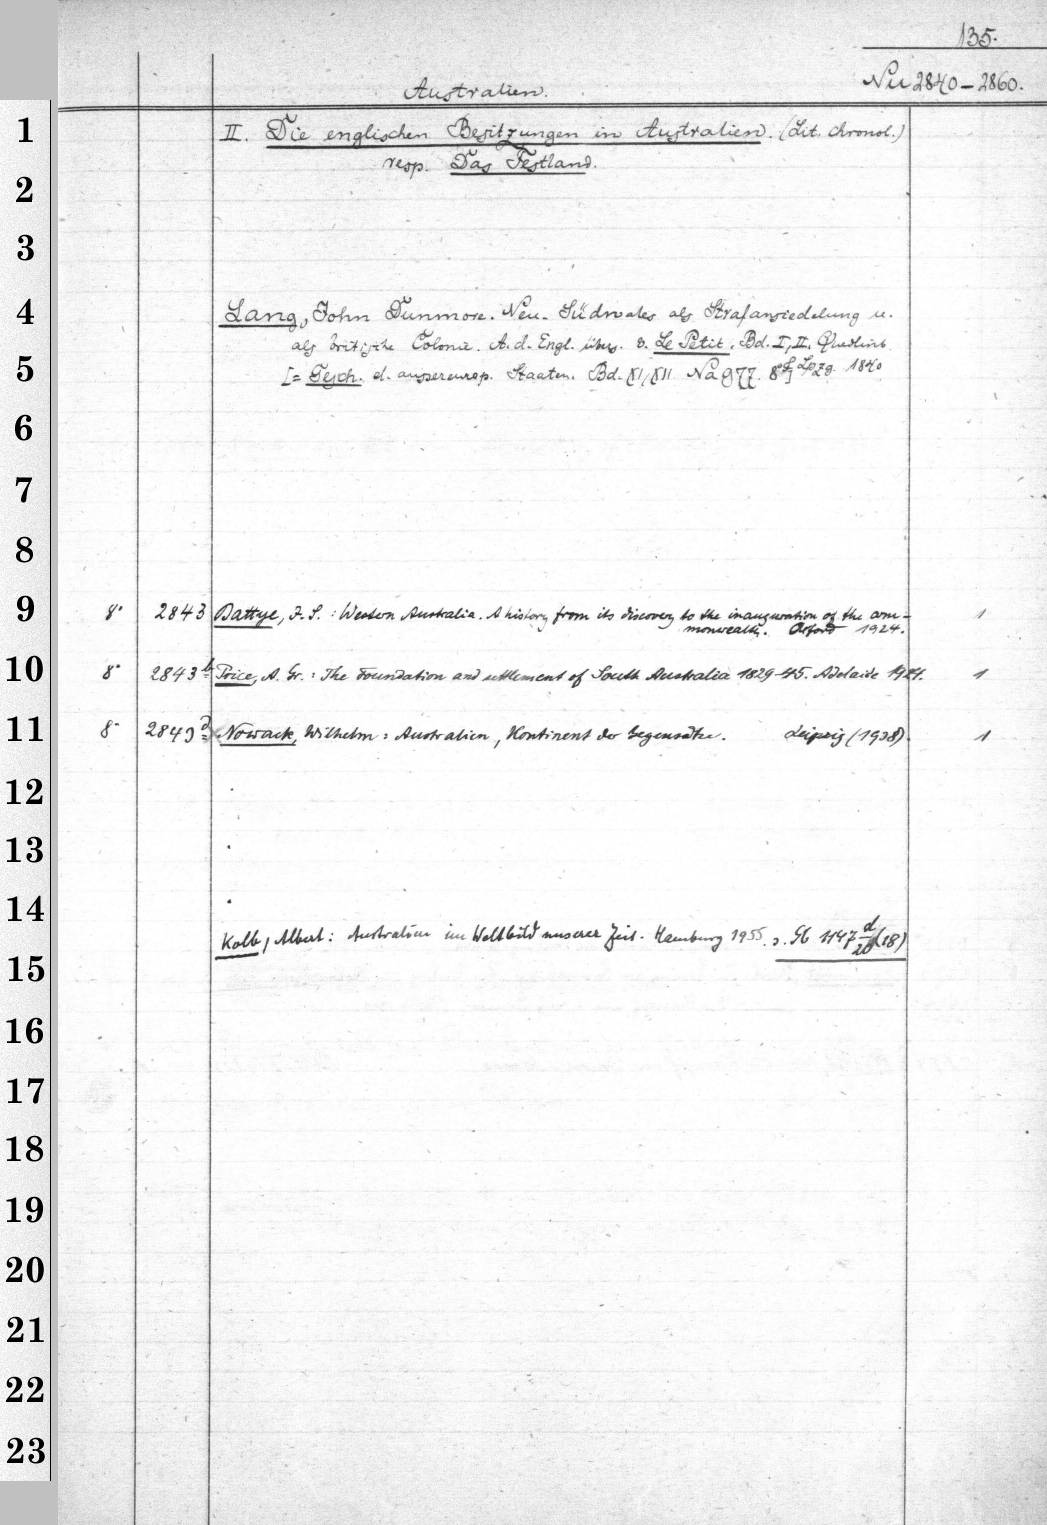 135.
Nu 2840-2860.
Australien.
1
II. Die englischen Besitzungen in Australien. (Lit. chronol.)
resp. Das Festland.
2
3
4
Lang, John Dunmore. Neu-Südwales als Strafansiedelung u.
als britische Colonie. A. d. Engl. übers. v. Le Petit. Bd. I, II. Quedlinb.
5
[= Gesch. d. aussereurop. Staaten. Bd. XI/XII Na 977. 8°] Lpzg. 1840
6
7
8
9
8° 2843 Battye, J. S.: Western Australia. A history from its discovery to the inauguration of the com- 1
monwealth. Oxford 1924.
10
8° 2843 b Price, A. Gr.: The Foundation and settlement of South Australia 1829-45. Adelaide 1924. 1
11
8° 2843 d Nowack, Wilhelm: Australien, Kontinent der Gegensätze. Leipzig (1938). 1
12
13
14
Kolb, Albert: Australien im Weltbild unserer Zeit. Hamburg 1955. s. Gb 1147 d/20 (18)
15
16
17
18
19
20
21
22
23